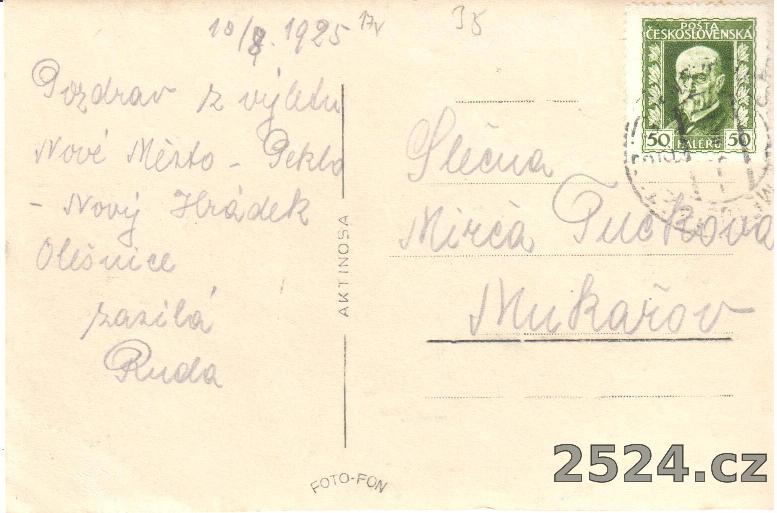 10/8. 1925
17v
35
POŠTA
ČESKOSLOVENSKA
50 HALERU 50
Pozdrav z výletu
Nové Město - Peklo
- Nový Hrádek
Olešnice
zasílá
Ruda
AKTINOSA
Slečna
Mirča Tučkova
Mukařov
FOTO-FON
2524.cz